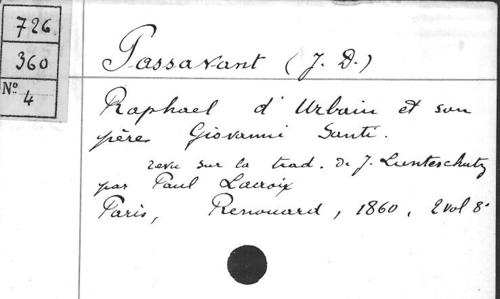 726
360
Nº 4
Passavant (J. D.)
Raphael d'Urbain et son
père Giovanni Santi.
revu sur la trad. de J. Lunteschutz
par Paul Lacroix
Paris, Renouard, 1860. 2 vol 8º